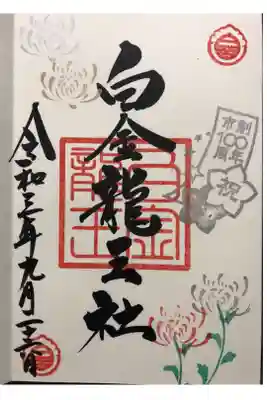 白金龍王社
令和三年九月
市制
100
周年
祝
白金
龍王